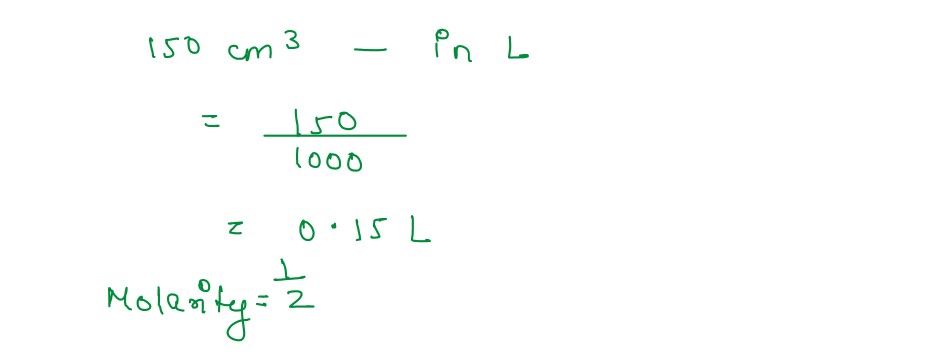 150 cm³ — in L
= 150/1000
= 0.15 L
Molarity = 1/2